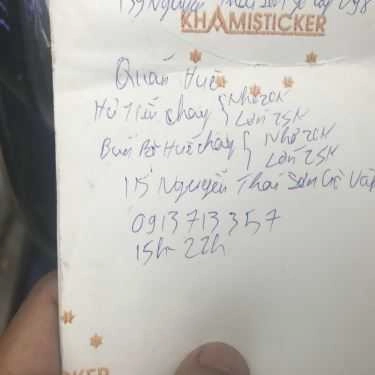 139 Nguyễn Thái Sơn
KHAMISTICKER
Quán Huế
Hủ Tiếu chay { Nhỏ 20N
Lớn 25N
Bún Bò Huế chay { Nhỏ 20N
Lớn 25N
115 Nguyễn Thái Sơn Gò Vấp
0913713357
15h - 22h
KER